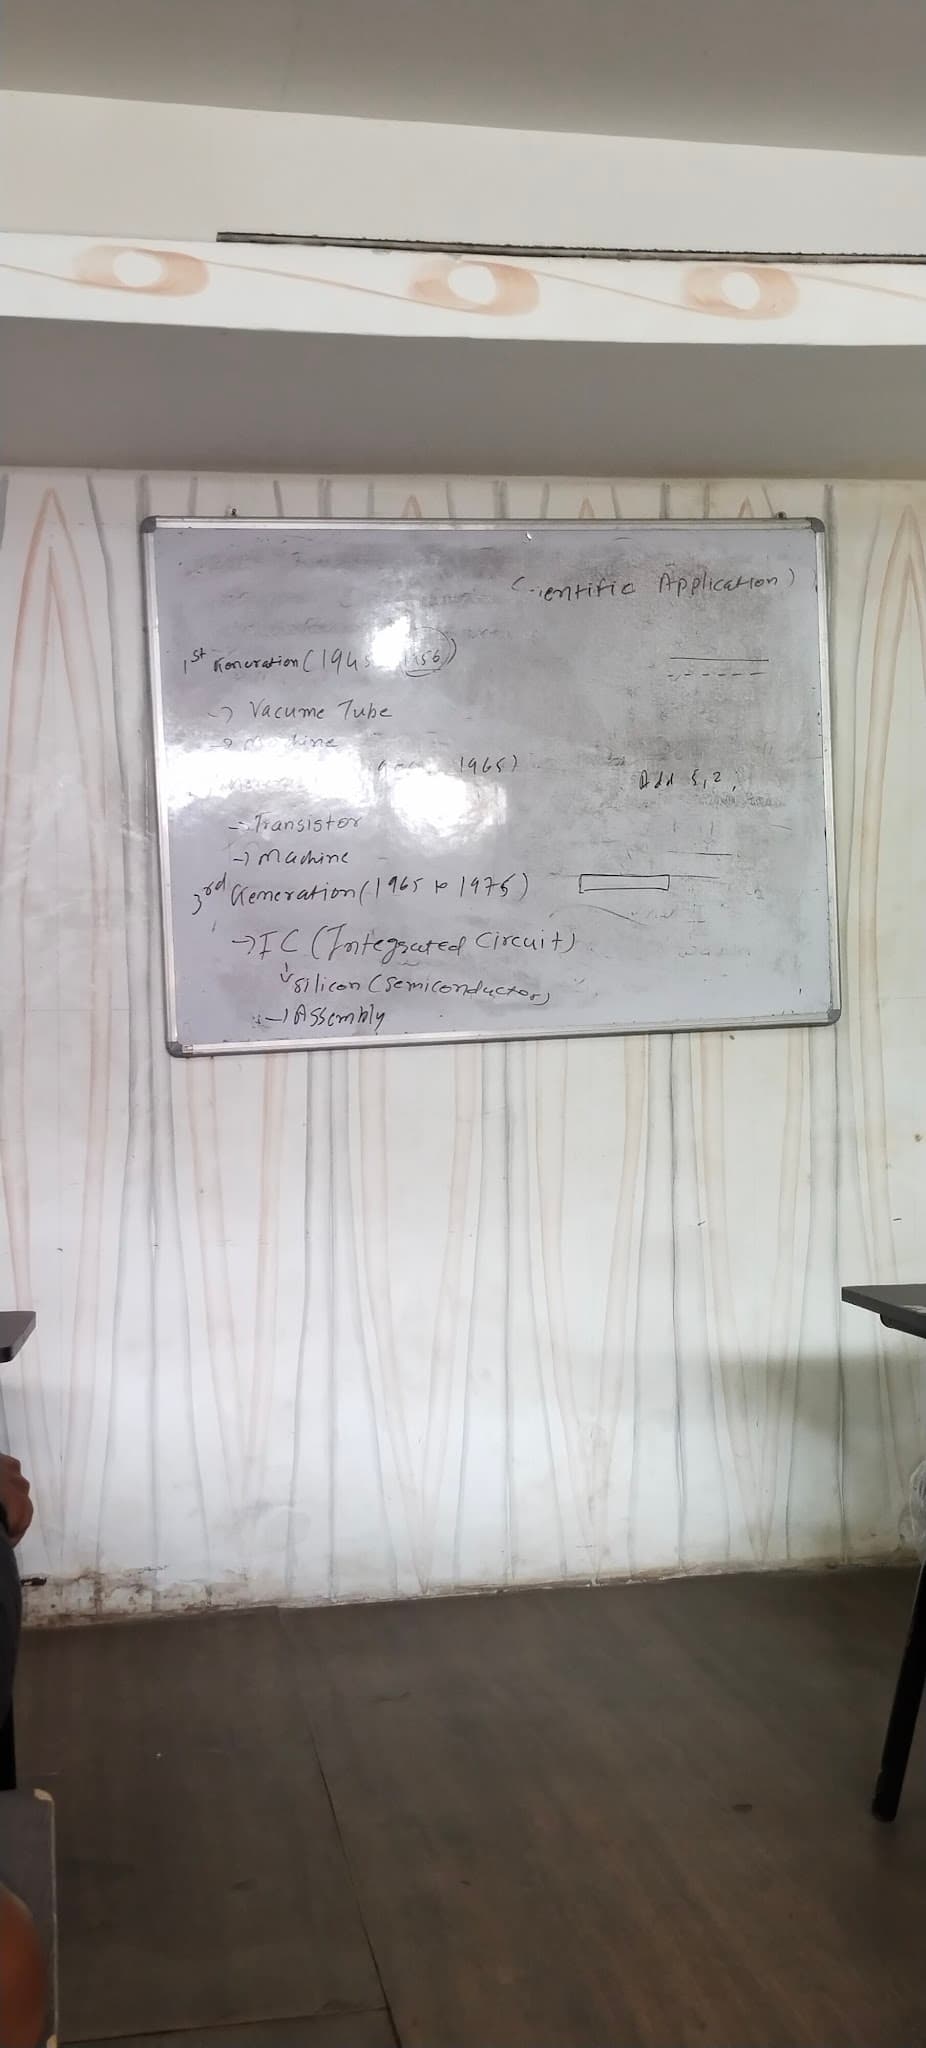 (Scientific Application)
1st Generation (1945 1956)
→ Vacume Tube
→ Machine
1965)
Add 5,2,
→ Transistor
→ Machine
3rd Generation (1965 to 1975)
→ IC (Integrated Circuit)
↓ silicon (semiconductor)
→ Assembly